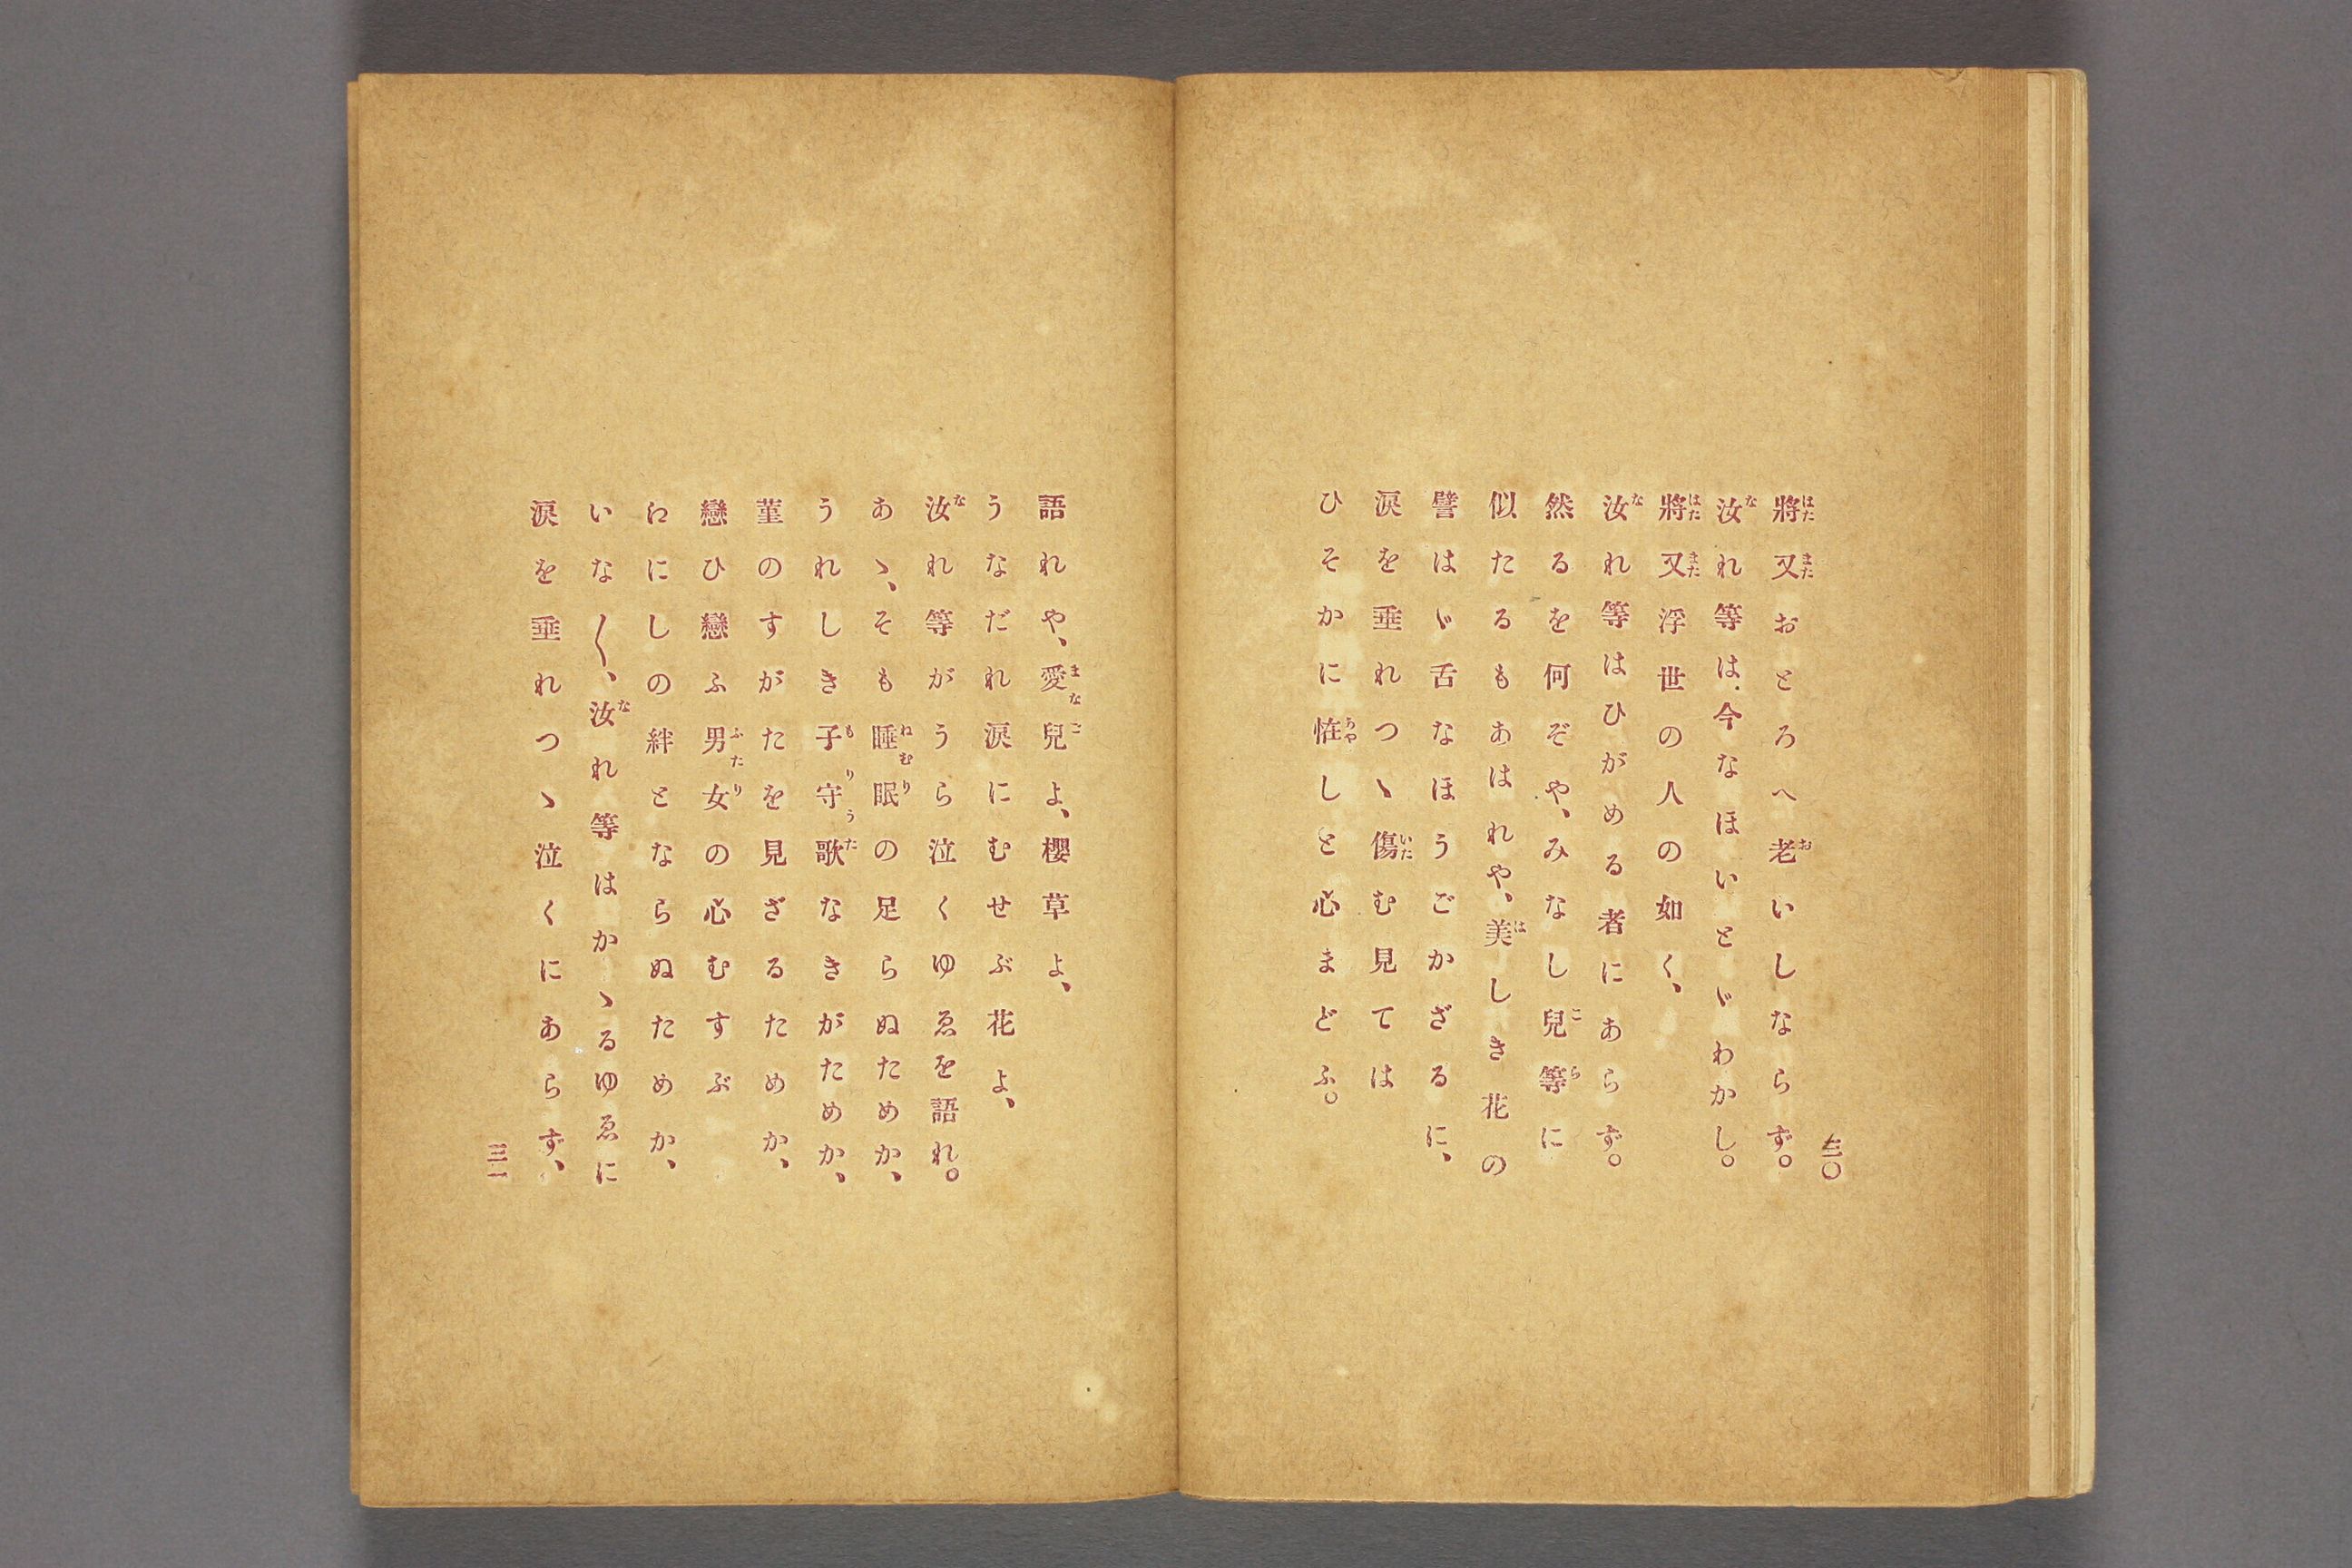 三〇
將又おとろへ老いしならず。
汝れ等は、今なほいとゞわかし。
將又浮世の人の如く、
汝れ等はひがめる者にあらず。
然るを何ぞや、みなし兒等に
似たるもあはれや、美しき花の
譬はゞ舌なほうごかざるに、
涙を垂れつゝ傷む見ては
ひそかに恠しと心まどふ。
語れや、愛兒よ、櫻草よ、
うなだれ涙にむせぶ花よ、
汝れ等がうら泣くゆゑを語れ。
あゝ、そも睡眠の足らぬためか、
うれしき子守歌なきがためか、
菫のすがたを見ざるためか、
戀ひ戀ふ男女の心むすぶ
わにしの絆とならぬためか、
いな〱、汝れ等はかゝるゆゑに
涙を垂れつゝ泣くにあらず、
三一